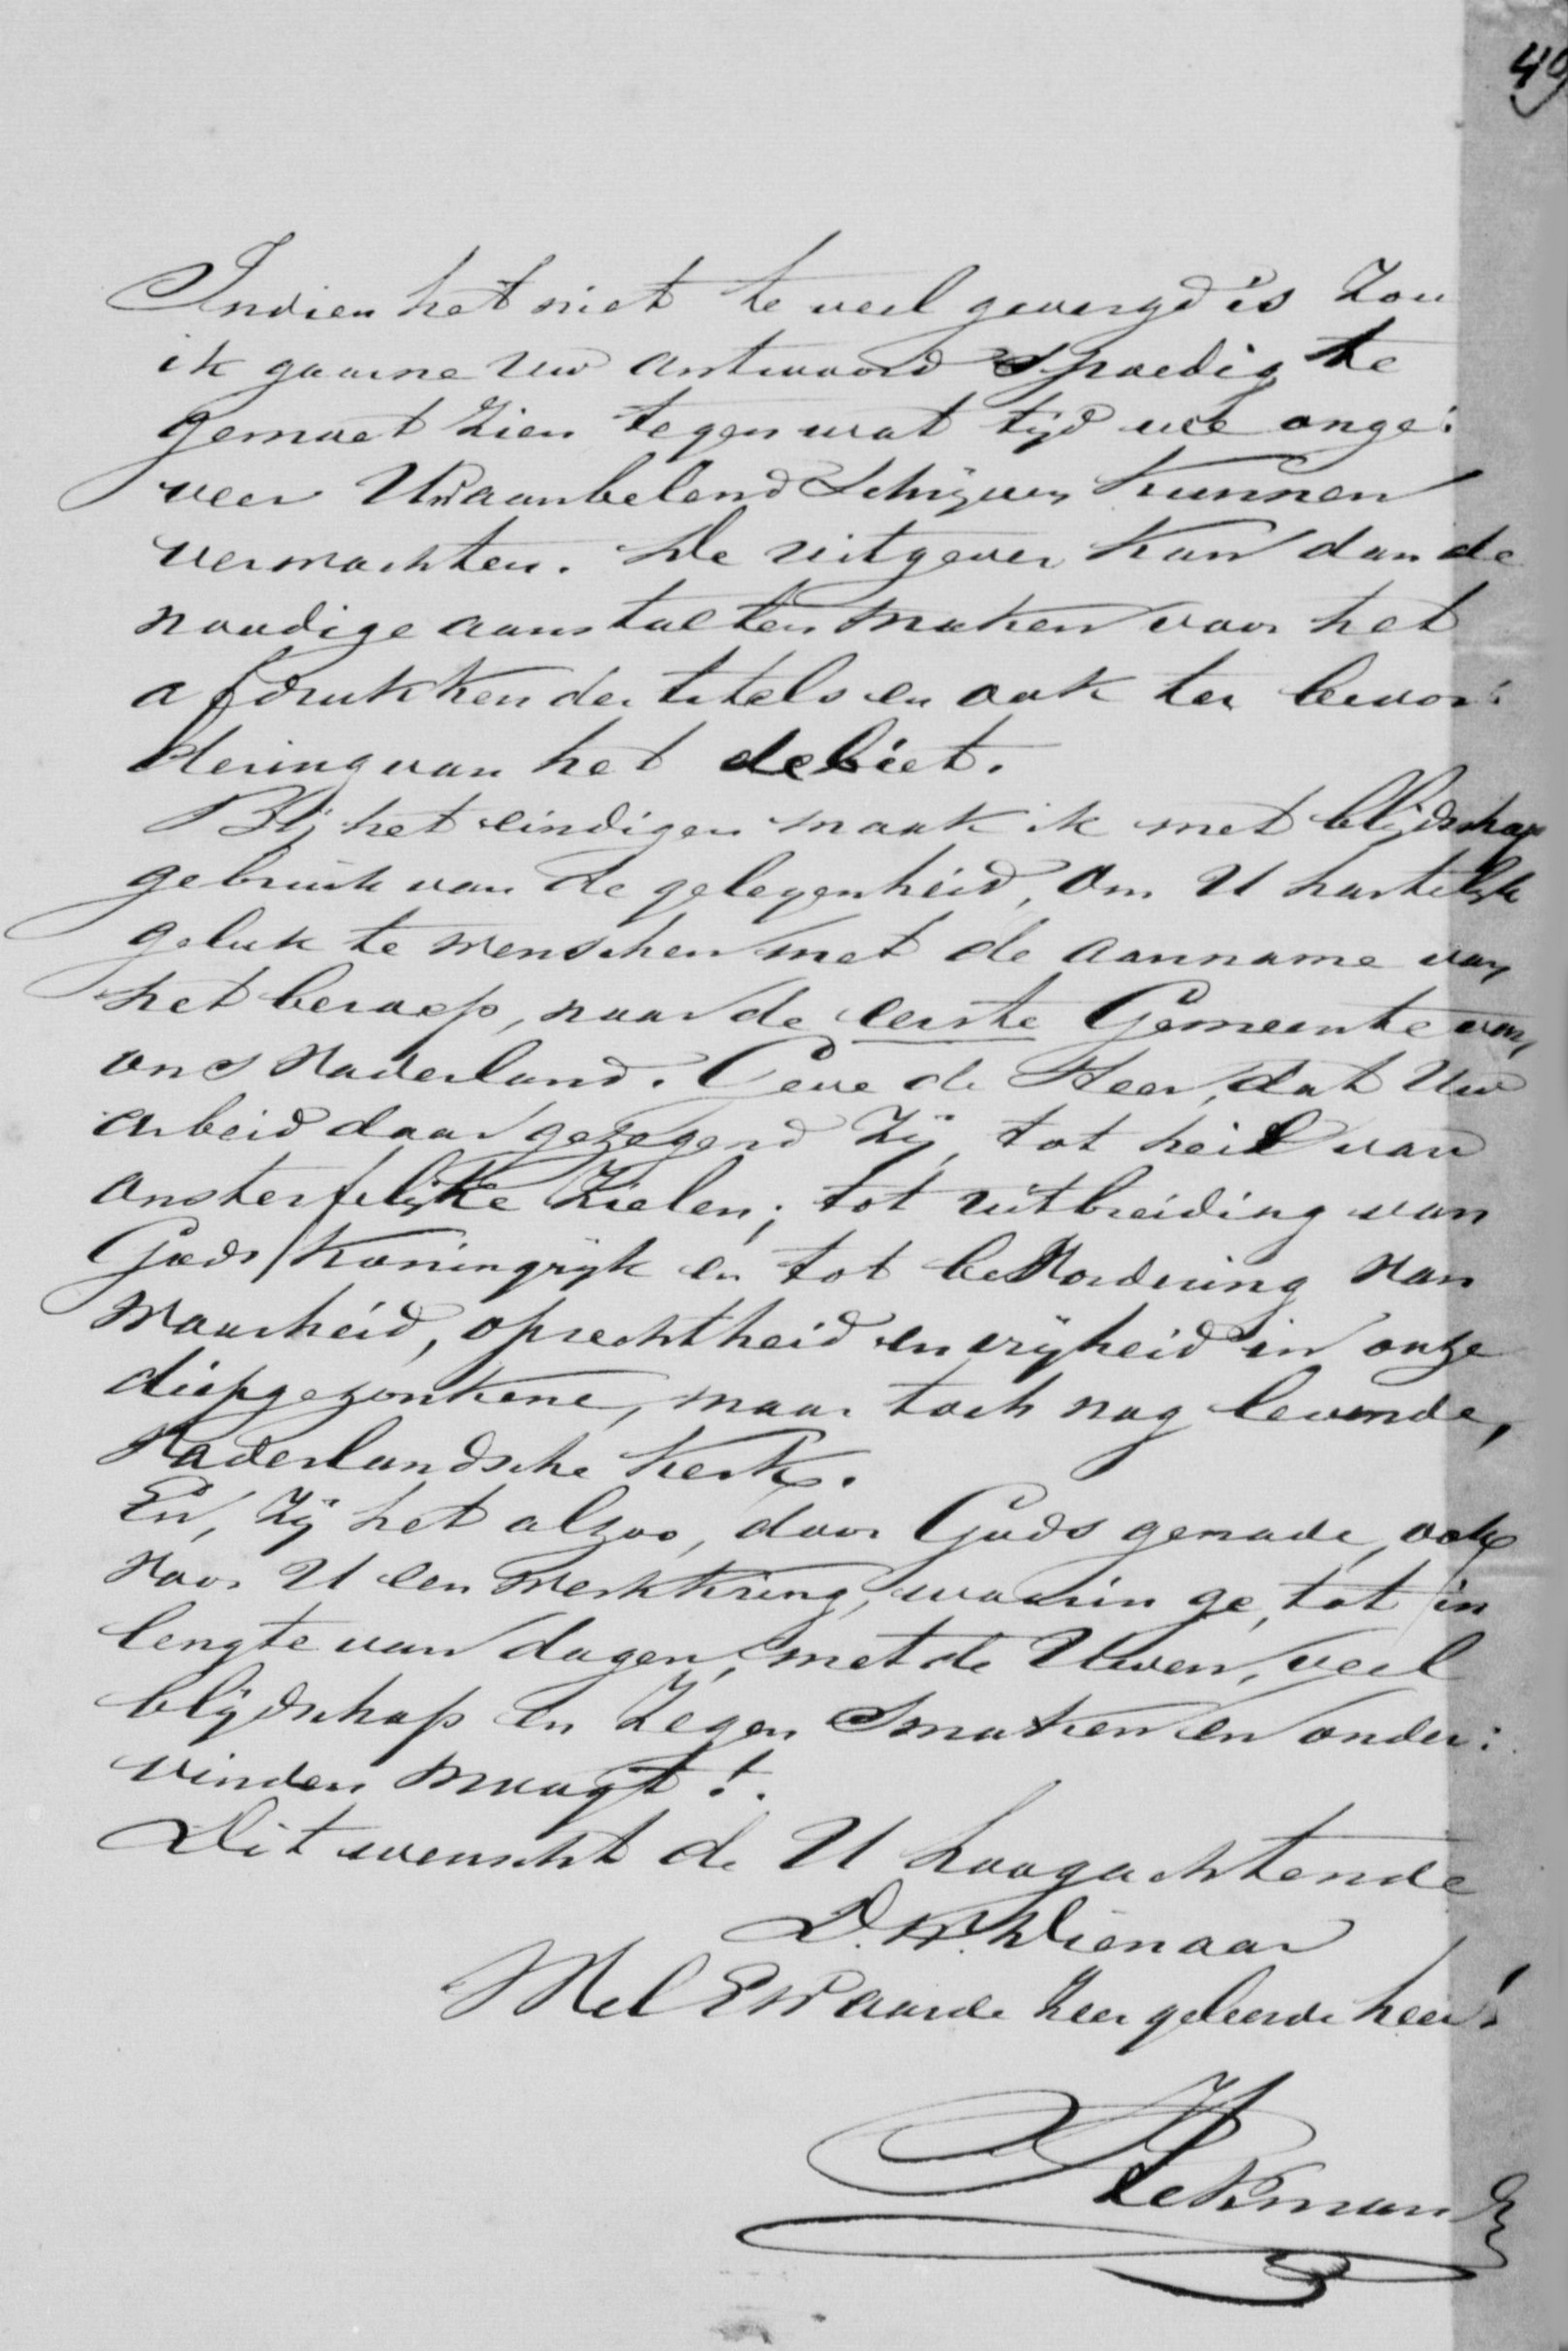 49
Indien het niet te veel gevergd is zou
ik gaarne Uw antwoord spoedig te
gemoet zien tegen wat tijd we onge:
veer Uw aanbelend Schrijven kunnen
verwachten. De uitgever kan dan de
noodige aanstalten maken voor het
afdrukken der titels en ook ter bevor:
dering van het debiet.
Bij het eindigen maak ik met blijdschap
gebruik van de gelegenheid, om U hartelijk
geluk te wenschen met de aanname van
het beroep, naar de eerste Gemeente van
ons Vaderland. Geve de Heer, dat Uw
arbeid daar gezegend zij, tot heil van
onsterfelijke zielen; tot uitbreiding van
Gods Koningrijk en tot bevordering van
waarheid, oprechtheid en vrijheid in onze
diepgezonkene, maar toch nog levende,
Vaderlandsche Kerk.
En, zij het alzoo, door Gods genade, ook
voor U een werkkring, waarin ge, tot in
lengte van dagen, met de Uwen, veel
blijdschap en zegen smaken en onder:
vinden moogt!.
Dit wenscht de U hoogachtende
D. W. Dienaar
Wel EWaarde zeer geleerde heer!